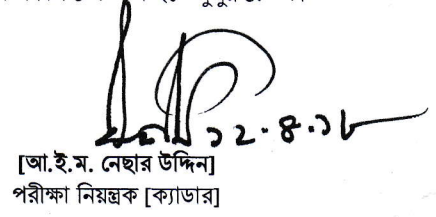 ১২.৪.১৮
[আ.ই.ম. নেছার উদ্দিন]
পরীক্ষা নিয়ন্ত্রক [ক্যাডার]